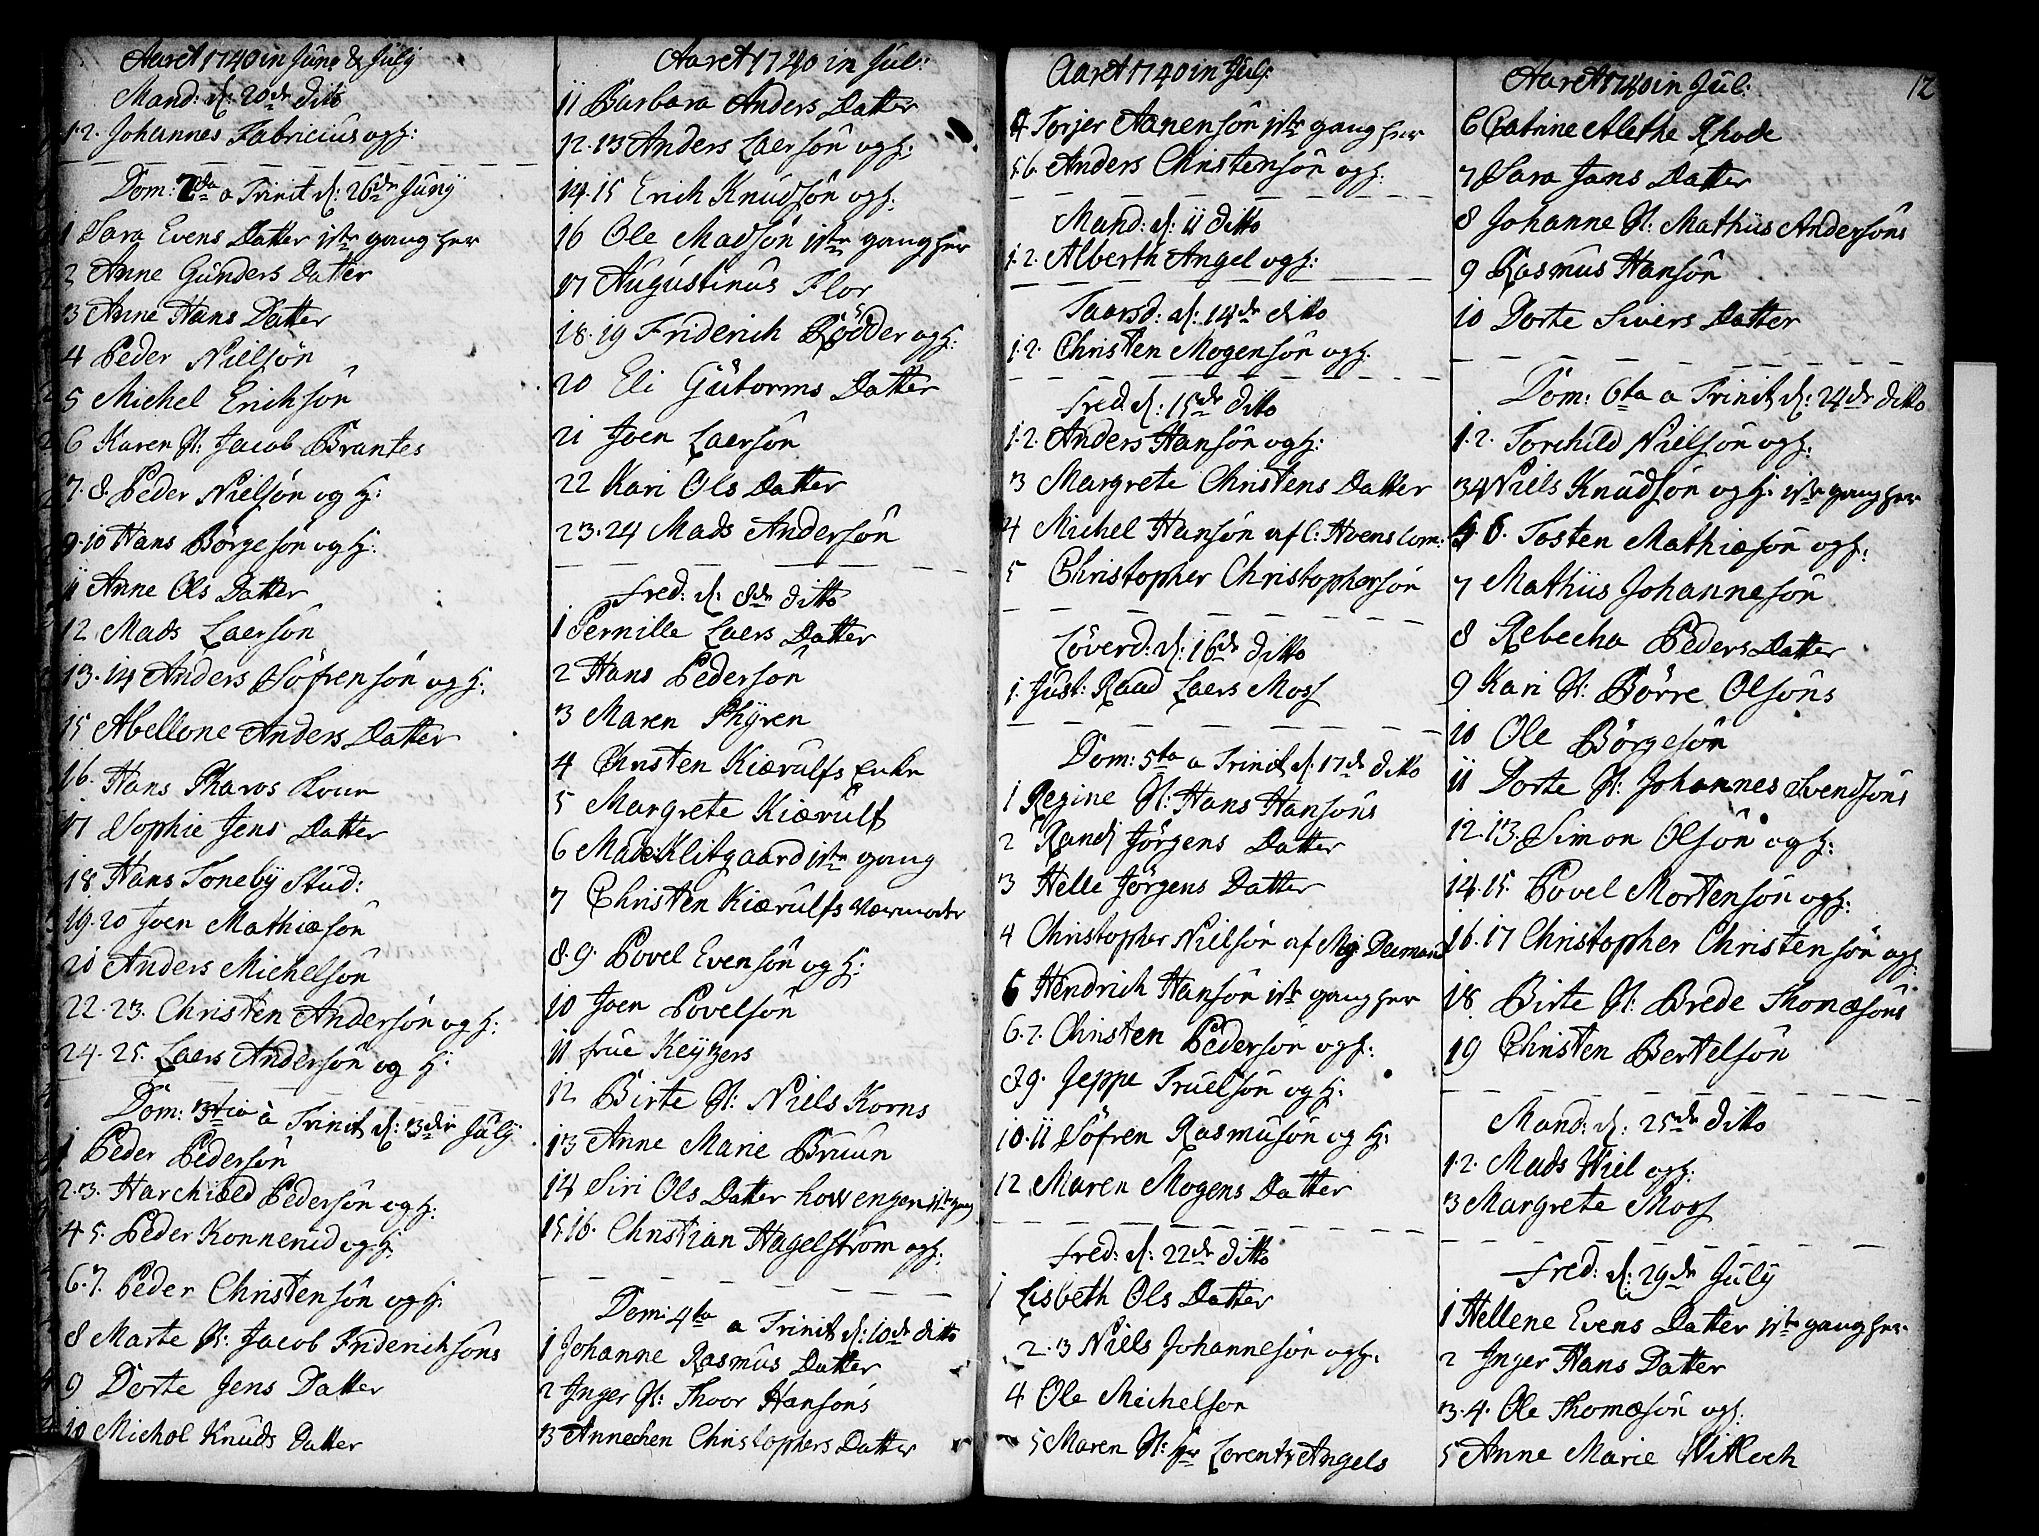 Aaret 1740 in Juny & July
Mand: d: 20de dito
1.2. Johannes Fabricius og H:
Dom: 2da a Trinit d: 26de Junÿ
1 Sara Evens Datter 1ste gang her
2 Anne Gunders Datter
3 Anne Hans Datter
4 Peder Nielsøn
5 Michel Erichsøn
6 Karen H: Jacob Brantes
7.8. Peder Nielsøn og H:
9.10 Hans Börgesøn og H:
11 Anne Ols Datter
12 Mads Laersøn
13.14 Anders Söfrensøn og H:
15 Abellone Anders Datter
16. Hans Pharos
17 Sophie Jens Datter
18 Hans Tonebÿ Stud:
19.20 Joen Mathiæsøn
21 Anders Michelsøn
22.23. Christen Andersøn og H:
24.25. Laers Andersøn og H:
Dom: 3tia a Trinit d: 3die Julÿ
1 Peder Pedersøn
2.3. Harchield Pedersøn og H:
4 5. Peder Konnerud og H:
6.7. Peder Christensøn og H:
8 Marte H: Jacob Friderichsøns
9 Dorte Jens Datter
10 Michol Knuds Datter
Aaret 1740 in Jul:
11 Barbara Anders Datter
12.13 Anders Laersøn og H:
14.15 Erich Knudsøn og H:
16 Ole Madsøn 1ste gang her
17 Augustinus Flor
18.19 Friderich Rödder og H:
20 Eli Gutorms Datter
21 Joen Laersøn
22 Kari Ols Datter
23.24 Mads Andersøn
Fred: d: 8de ditto
1 Pernille Laers Datter
2 Hans Pedersøn
3 Maren Thÿren
4 Christen Kiærulfs Enke
5 Margrete Kiærulf
6 Mads Klitgaard 1ste gang
7 Christen Kiærulfs Værmoder
8.9. Povel Evensøn og H:
10 Joen Povelsøn
11 frue Keÿzers
12 Birte H: Niels Korns
13 Anne Marie Bruun
14 Siri Ols Datter howengen 1ste gang
15.16. Christian Hagelström og H:
Dom: 4ta a Trinit d: 10de ditto
1 Johanne Rasmus Datter
2 Inger H: Thoor Hansøns
3 Annechen Christophers Datter
Aaret 1740 in Julÿ:
4 Torjer Aanensøn 1ste gang her
5.6. Anders Christensøn og H:
Mand: d: 11 ditto
1.2. Alberth Angel og H:
Taarsd: d: 14de ditto
1.2. Christen Mogensøn og H:
Fred d: 15de ditto
1.2. Anders Hansøn og H:
3 Margrete Christens Datter
4 Michel Hansøn af C: Hvens Com:
5 Christopher Christophersøn
Löverd: d: 16de ditto
1. Just: Raad Laers Moss
Dom: 5ta a Trinit d: 17de ditto
1 Regine H: Hans Hansøns
2 Randi Jörgens Datter
3 Helle Jörgens Datter
4 Christopher Nielsøn af Mÿ Deemand
5 Hendrich Hansøn 1ste gang her
6.7. Christen Pedersøn og H:
8.9. Jeppe Truelsøn og H:
10.11 Söfren Rasmusøn og H:
12 Maren Mogens Datter
Fred: d: 22de ditto
1 Lisbeth Ols Datter
2.3 Niels Johannesøn og H:
4 Ole Michelsøn
5 Maren H: hr Lorentz Angels
Aaret 1740 in Jul:
12
6 Catrine Alethe Rhode
7 Sara Jans Datter
8 Johanne H: Mathiis Andersøns
9 Rasmus Hansøn
10 Dorte Sivers Datter
Dom: 6ta a Trinit d: 24de ditto
1.2. Torchild Nielsøn og H:
3 4 Niels Knudsøn og H. 1ste gang her
5.6. Tosten Mathiæsøn og H:
7 Mathiis Johannesøn
8 Rebecha Peders Datter
9 Kari H: Börre Olsøns
10 Ole Börgesøn
11 Dorte H: Johannes Svendsøns
12.13. Simon Olsøn og H:
14.15. Povel Mortensøn og H:
16.17 Christopher Christensøn og H:
18. Birte H: Brede Thomæsøns
19 Christen Bertelsøn
Mand: d: 25de ditto
1.2. Mads Wiel og H:
3 Margrete Moss
Fred: d: 29de Julÿ
1 Hellene Evens Datter 1ste gang her
2 Inger Hans Datter
3.4. Ole Thomæsøn og H:
5 Anne Marie Witloch